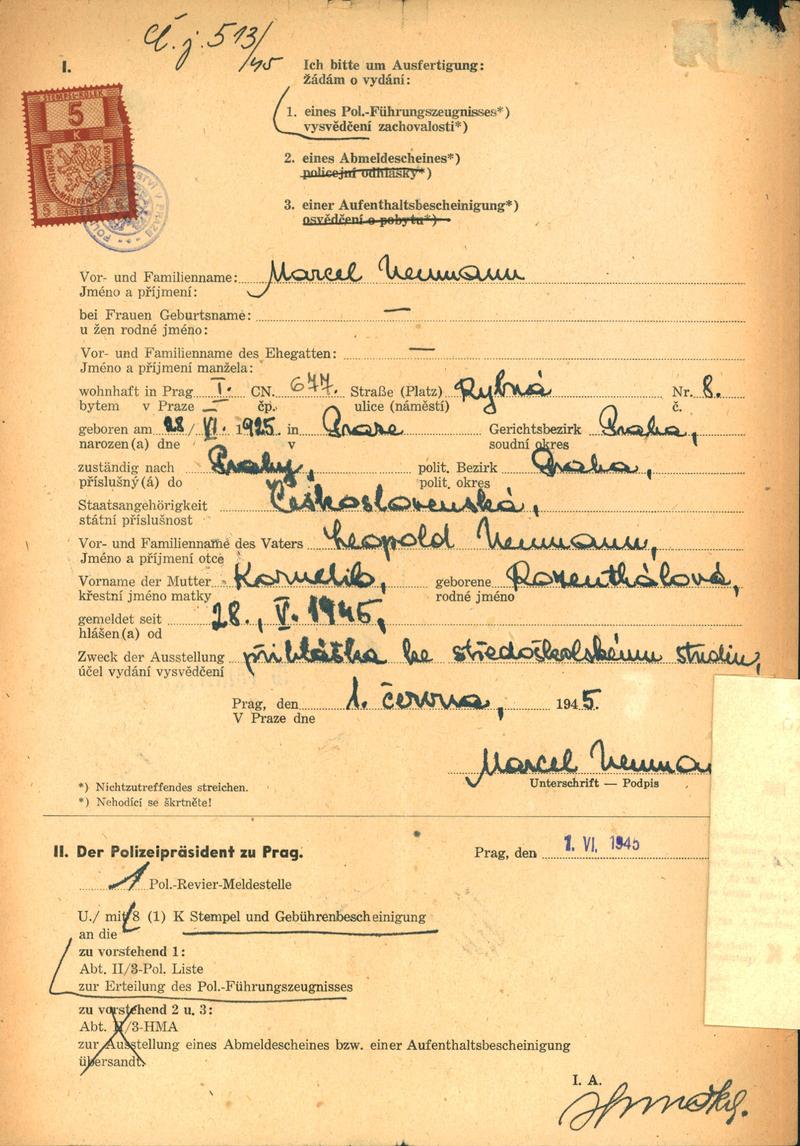 Č. j. 513/45
I.
Ich bitte um Ausfertigung:
Žádám o vydání:
STEMPEL-KOLEK
5
K
BÖHMEN UND MÄHREN
1. eines Pol.-Führungszeugnisses*)
vysvědčení zachovalosti*)
2. eines Abmeldescheines*)
policejní odhlášky*)
3. einer Aufenthaltsbescheinigung*)
osvědčení o pobytu*)
Vor- und Familienname: Marcel Neumann
Jméno a příjmení:
bei Frauen Geburtsname: —
u žen rodné jméno:
Vor- und Familienname des Ehegatten: —
Jméno a příjmení manžela:
wohnhaft in Prag I. CN. 677. Straße (Platz) Rybná Nr. 8.
bytem v Praze — čp. ulice (náměstí) č.
geboren am 28/VI. 1925 in Praze Gerichtsbezirk Praha,
narozen(a) dne v soudní okres
zuständig nach Prahy, polit. Bezirk Praha,
příslušný(á) do polit. okres
Staatsangehörigkeit Československá,
státní příslušnost
Vor- und Familienname des Vaters Leopold Neumann,
Jméno a příjmení otce
Vorname der Mutter Kornelie, geborene Rosenthálová,
křestní jméno matky rodné jméno
gemeldet seit 28., V. 1945,
hlášen(a) od
Zweck der Ausstellung přihláška ke středoškolskému studiu,
účel vydání vysvědčení
Prag, den 1. června, 1945.
V Praze dne
Marcel Neuman
Unterschrift — Podpis
*) Nichtzutreffendes streichen.
*) Nehodící se škrtněte!
II. Der Polizeipräsident zu Prag.
Prag, den 1. VI. 1945
1 Pol.-Revier-Meldestelle
U./ mit 8 (1) K Stempel und Gebührenbescheinigung
an die
zu vorstehend 1:
Abt. II/3-Pol. Liste
zur Erteilung des Pol.-Führungszeugnisses
zu vorstehend 2 u. 3:
Abt. II/3-HMA
zur Ausstellung eines Abmeldescheines bzw. einer Aufenthaltsbescheinigung
übersandt.
I. A.